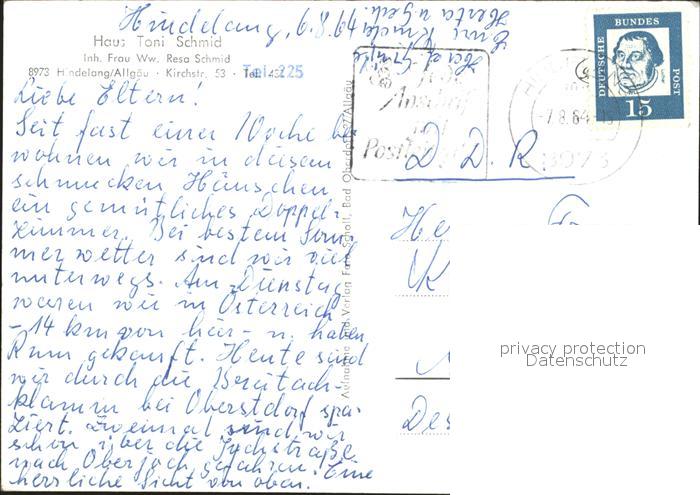 Hindelang, 6.8.1964
Haus Toni Schmid
Inh. Frau Ww. Resa Schmid
8973 Hindelang/Allgäu · Kirchstr. 53 · Tel. 45
Tel. 225
Liebe Eltern!
Seit fast einer Woche be-
wohnen wir in diesem
schmucken Häuschen
ein gemütliches Doppel-
zimmer. Bei bestem Som-
merwetter sind wir viel
unterwegs. Am Dienstag
waren wir in Österreich
– 14 km von hier – u. haben
Rum gekauft. Heute sind
wir durch die Breitach-
klamm bei Oberstdorf spa-
ziert. Zweimal sind wir
schon über die Jochstraße
nach Oberjoch gefahren. Eine
herrliche Sicht von oben.
Herzl. Grüße
Eure Kinder
Herta u.
Aufnahme und Verlag Foto-Scholl, Bad Oberdorf/Allgäu
DEUTSCHE
BUNDES
POST
15
Anschrift
Post
-7.8.64-
8973
D. D. R.
He
Fr
K
Des
privacy protection
Datenschutz